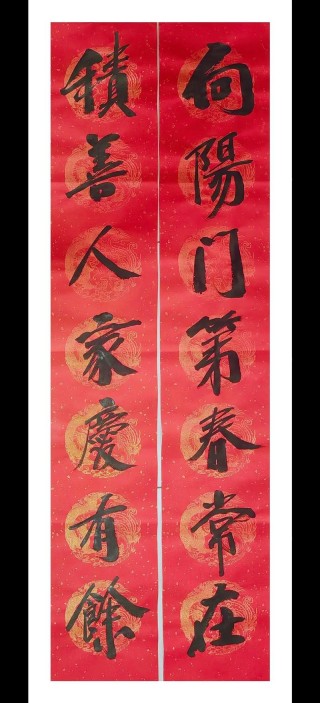 向陽门第春常在
積善人家慶有餘